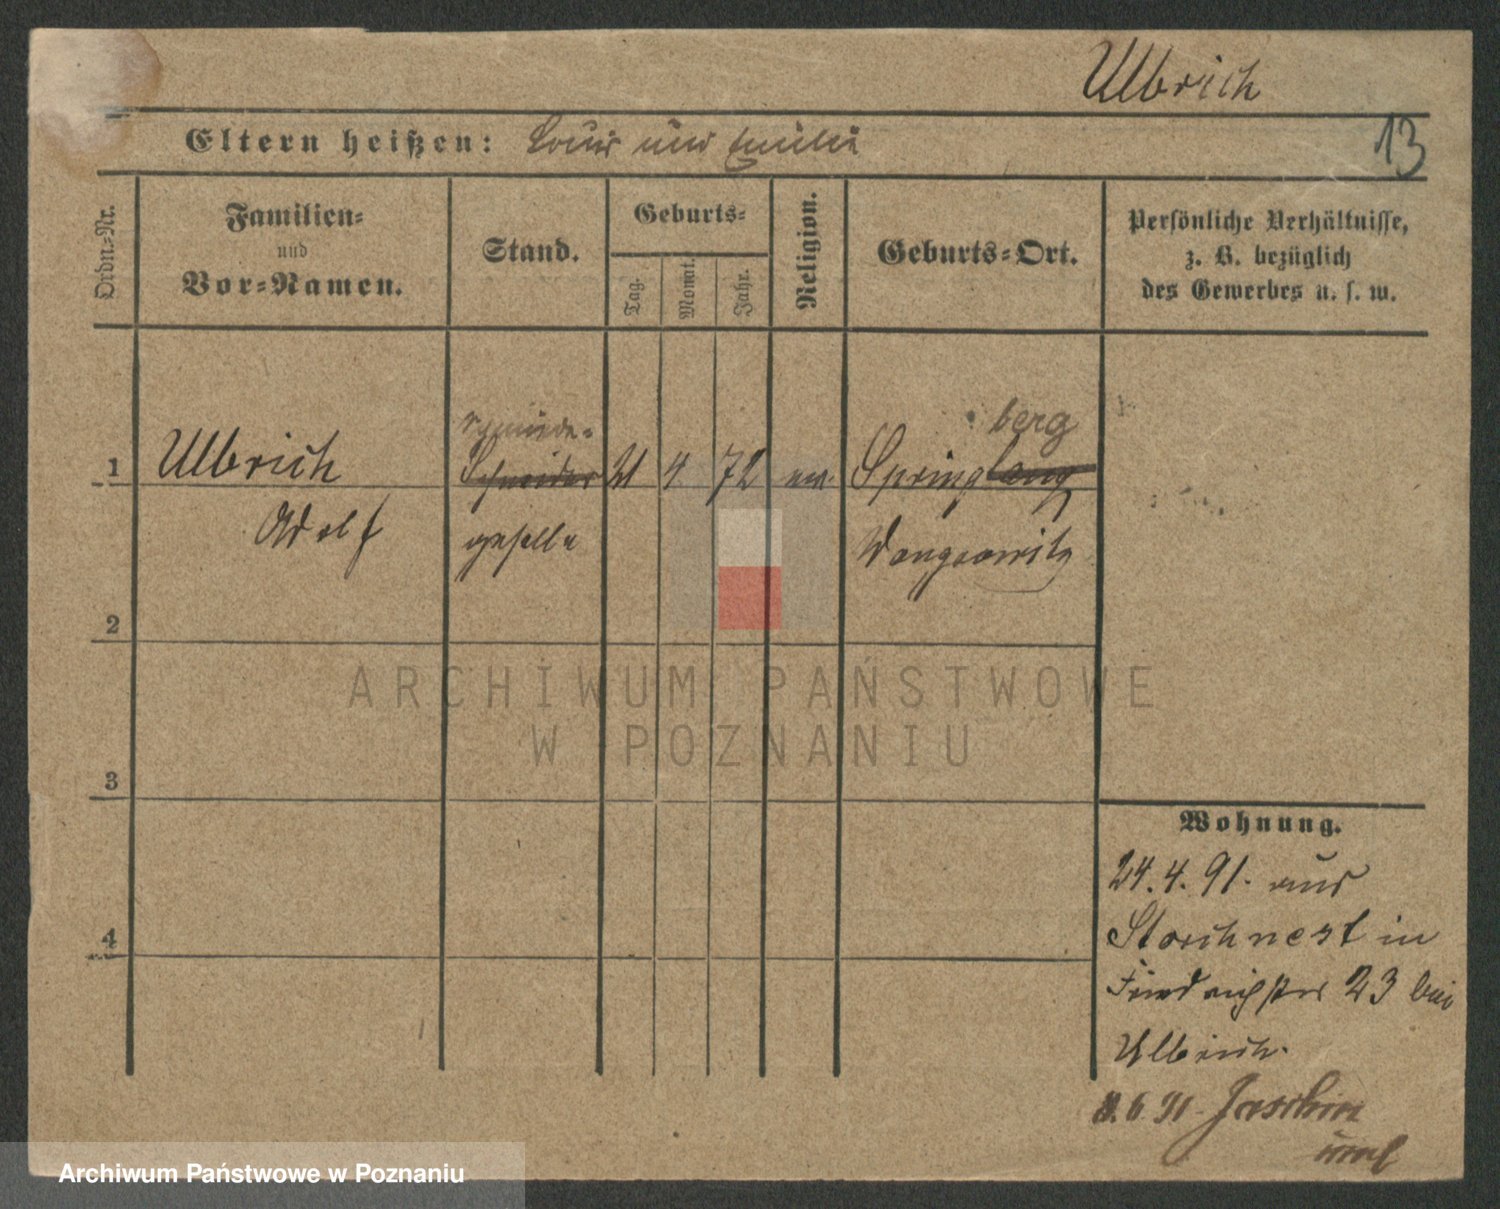 Ulbrich
13
Eltern heißen: Louis und Emilie
Ordn.-Nr.
Familien-
und
Vor-Namen.
Stand.
Geburts-
Tag.
Monat.
Jahr.
Religion.
Geburts-Ort.
Persönliche Verhältnisse,
z. B. bezüglich
des Gewerbes u. s. w.
berg
Schmiede-
1 Ulbrich Schneider 21 4 72 ev. Springlang
Adolf geselle Wongrowitz
2
3
4
Wohnung.
24. 4. 91. aus
Storchnest in
Friedrichstr 23 bei
Ulbrich.
6 91.
ARCHIWUM PAŃSTWOWE
W POZNANIU
Archiwum Państwowe w Poznaniu